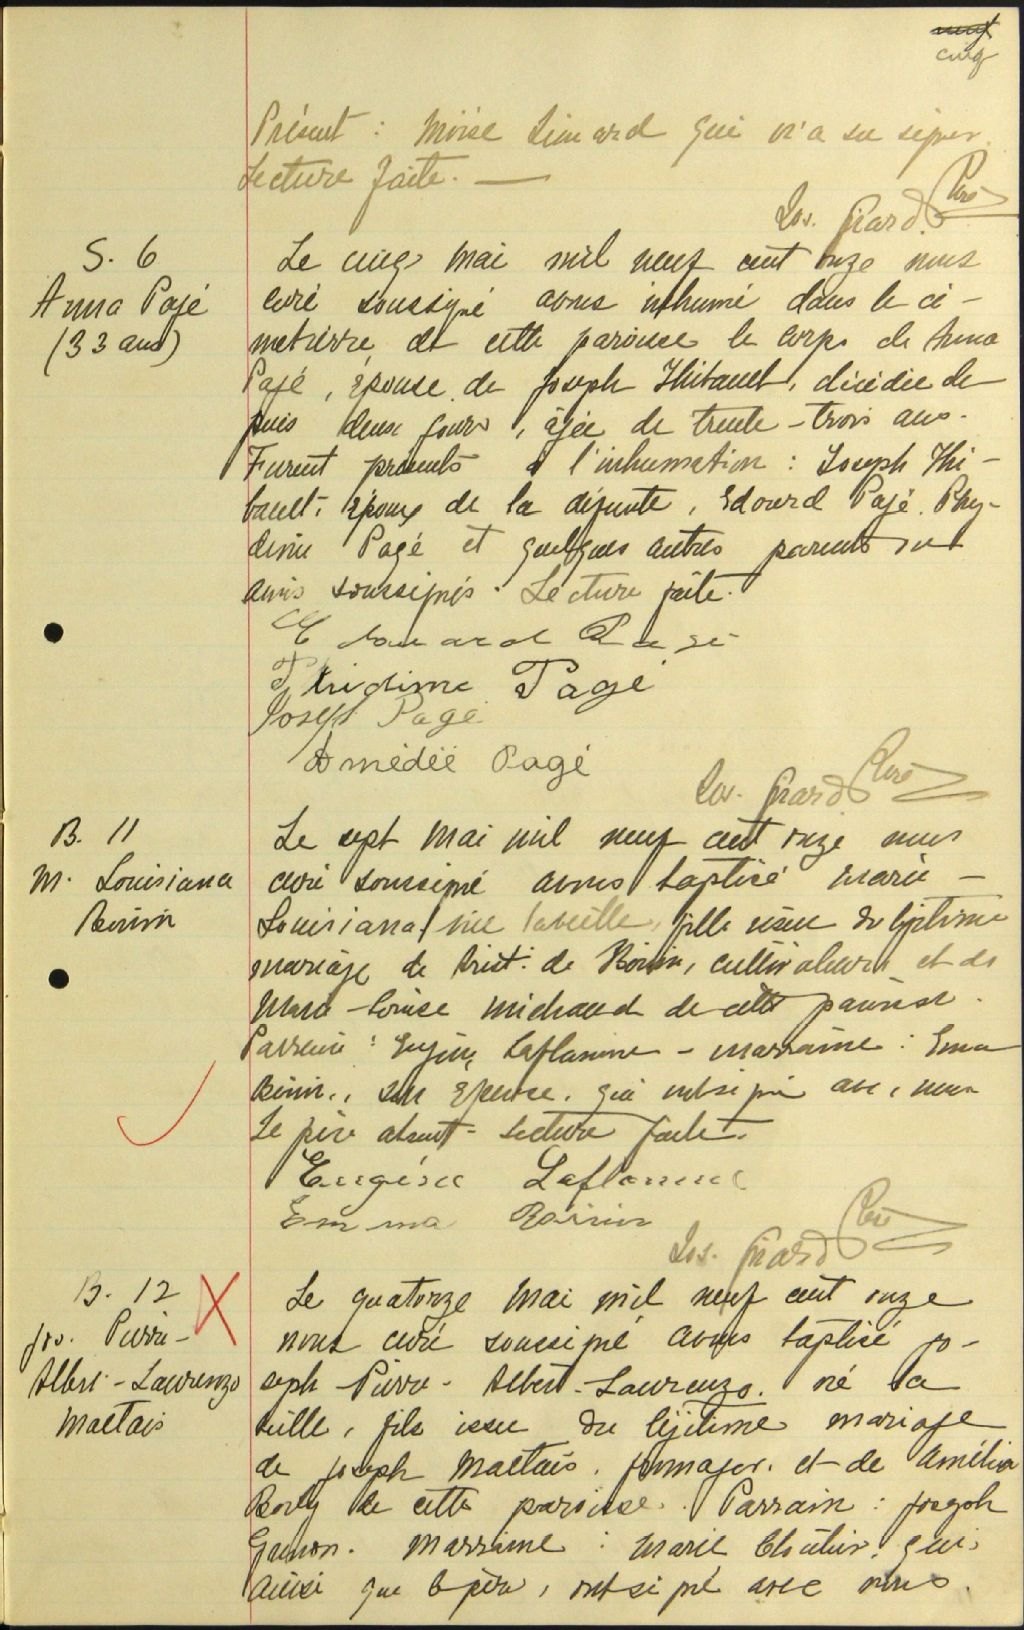 cinq
Présent : Moïse Simard qui n'a su signer.
Lecture faite. —
Jos. Girard Ptre
S. 6
Anna Pagé
(33 ans)
Le cinq mai mil neuf cent onze nous
curé soussigné avons inhumé dans le ci-
metière de cette paroisse le corps de Anna
Pagé, épouse de Joseph Thibault, décédée de
puis deux jours, âgée de trente-trois ans.
Furent présents à l'inhumation : Joseph Thi-
bault, époux de la défunte, Edouard Pagé,
Pagé et quelques autres parents et
amis soussignés. Lecture faite.
Edouard Pagé
Phidime Pagé
Joseph Pagé
Amédée Pagé
Jos. Girard Ptre
B. 11
M. Louisiana
Boivin
Le sept mai mil neuf cent onze nous
curé soussigné avons baptisé Marie-
Louisiana née la veille, fille issue du légitime
mariage de de Boivin, cultivateur et de
Marie-Louise Michaud de cette paroisse.
Parrain : Eugène Laflamme - marraine : Emma
Boivin, son épouse, qui ont signé avec nous
Le père absent - Lecture faite.
Eugène Laflamme
Emma Boivin
Jos. Girard Ptre
B. 12
Jos. Pierre-
Albert-Laurenzo
Maltais
Le quatorze mai mil neuf cent onze
nous curé soussigné avons baptisé Jo-
seph-Pierre-Albert-Laurenzo, né la
veille, fils issu du légitime mariage
de Joseph Maltais, fromager, et de Amélia
Boily de cette paroisse. Parrain : Joseph
Gagnon. Marraine : Marie Cloutier, qui,
ainsi que le père, ont signé avec nous.